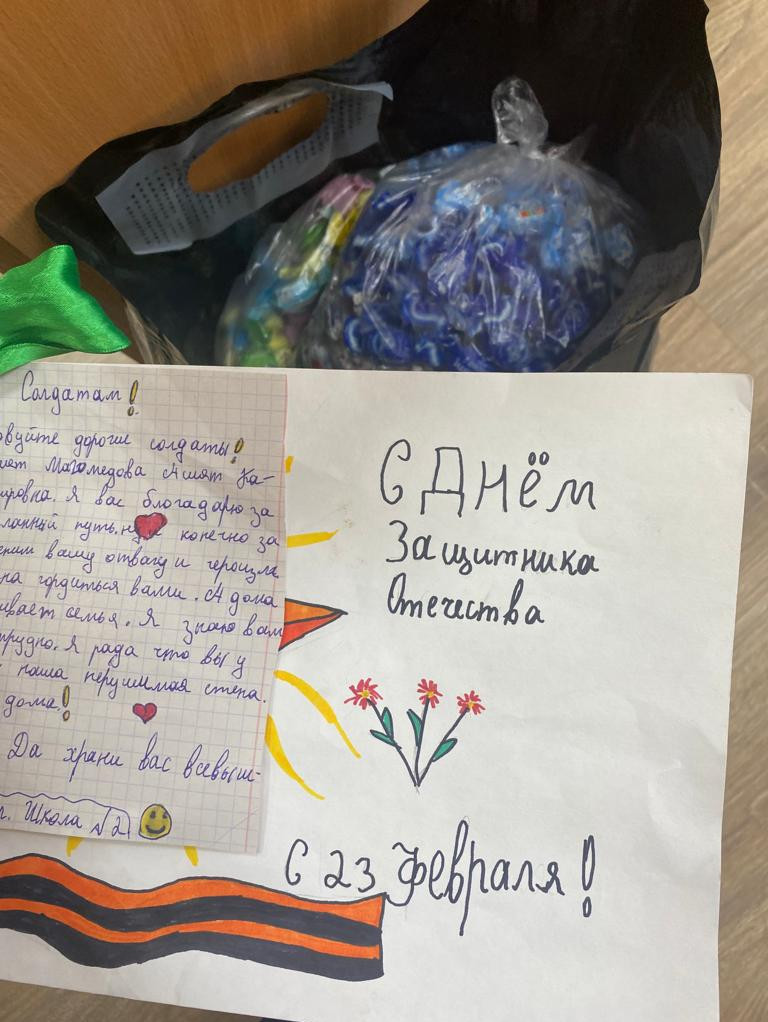 Солдатам!
вуйте дорогие солдаты!
Магомедова Ашят Ка-
ировна. Я вас благадарю за
путь. конечно за
вашу отвагу и героизм
на гордиться вами. А дома
вает семья. Я знаю вам
трудно. Я рада что вы у
наша нерушимая стена.
дома!
Да храни вас всевыш-
Школа №2
С Днём
Защитника
Отечества
С 23 февраля!